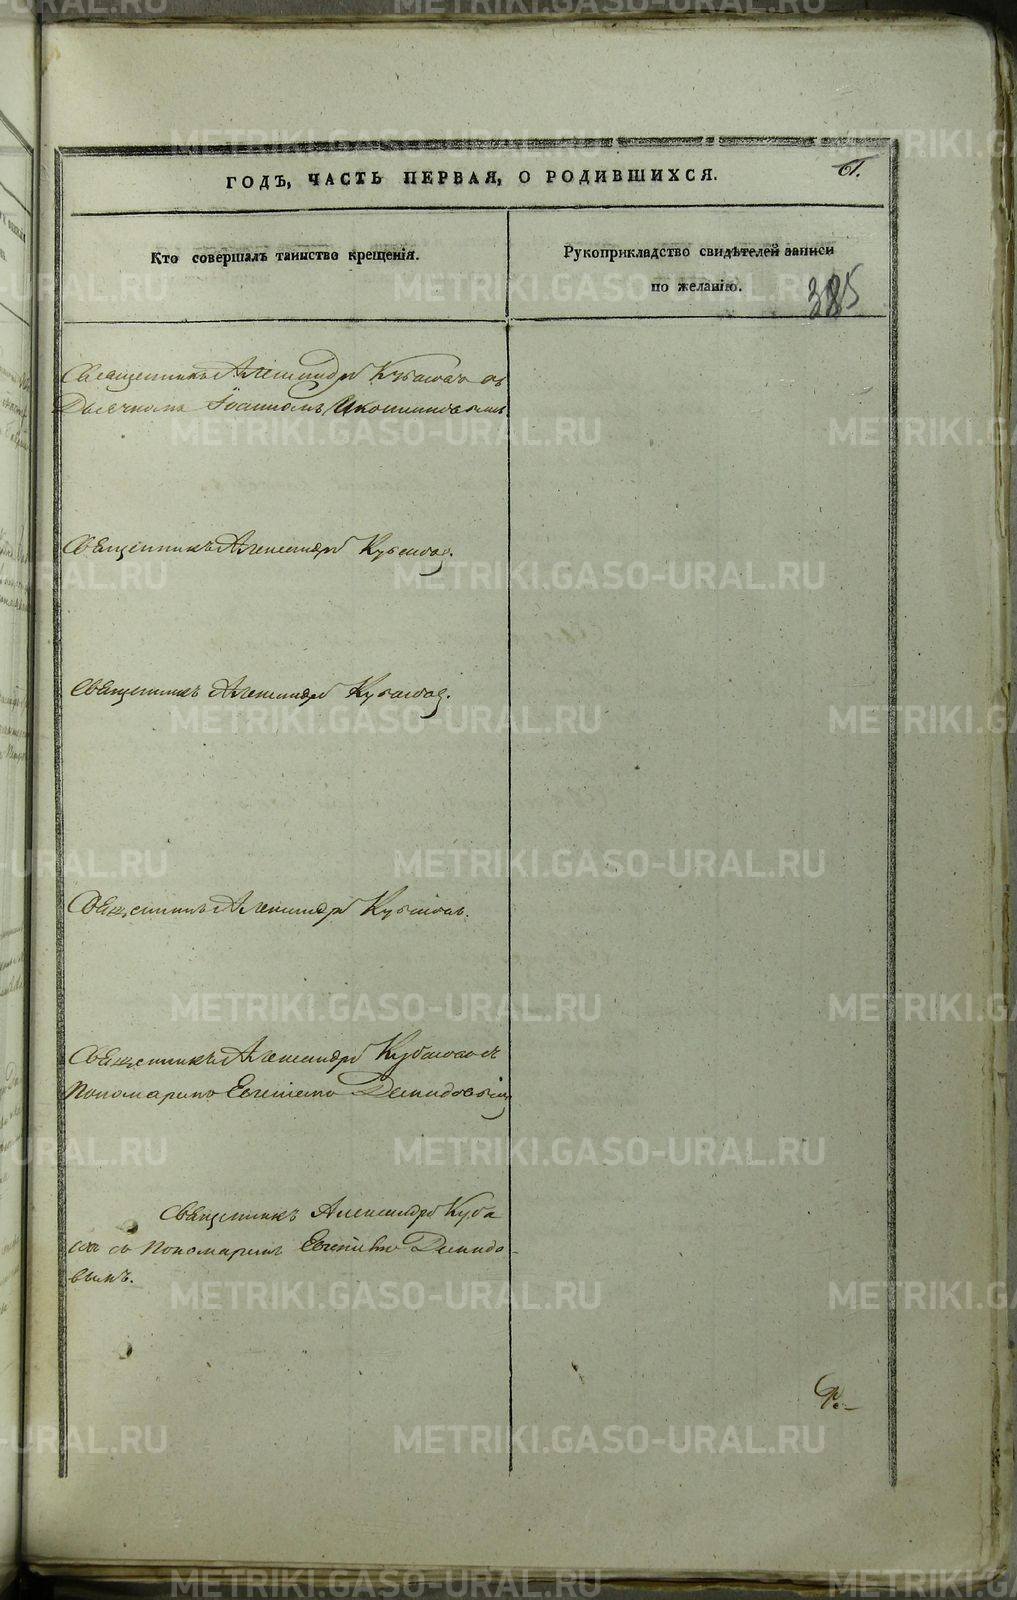 61.
ГОДЪ, ЧАСТЬ ПЕРВАЯ, О РОДИВШИХСЯ.
Кто совершалъ таинство крещенія.
Рукоприкладство свидѣтелей записи
по желанію.
385
Священникъ Александръ Кубасовъ съ
Дьячкомъ Іоанномъ Иконниковымъ
Священникъ Александръ Кубасовъ.
Священникъ Александръ Кубасовъ.
Священникъ Александръ Кубасовъ.
Священникъ Александръ Кубасовъ съ
Пономаремъ Демидовымъ
Священникъ Александръ Куба
совъ съ Пономаремъ Демидо-
вымъ.
METRIKI.GASO-URAL.RU